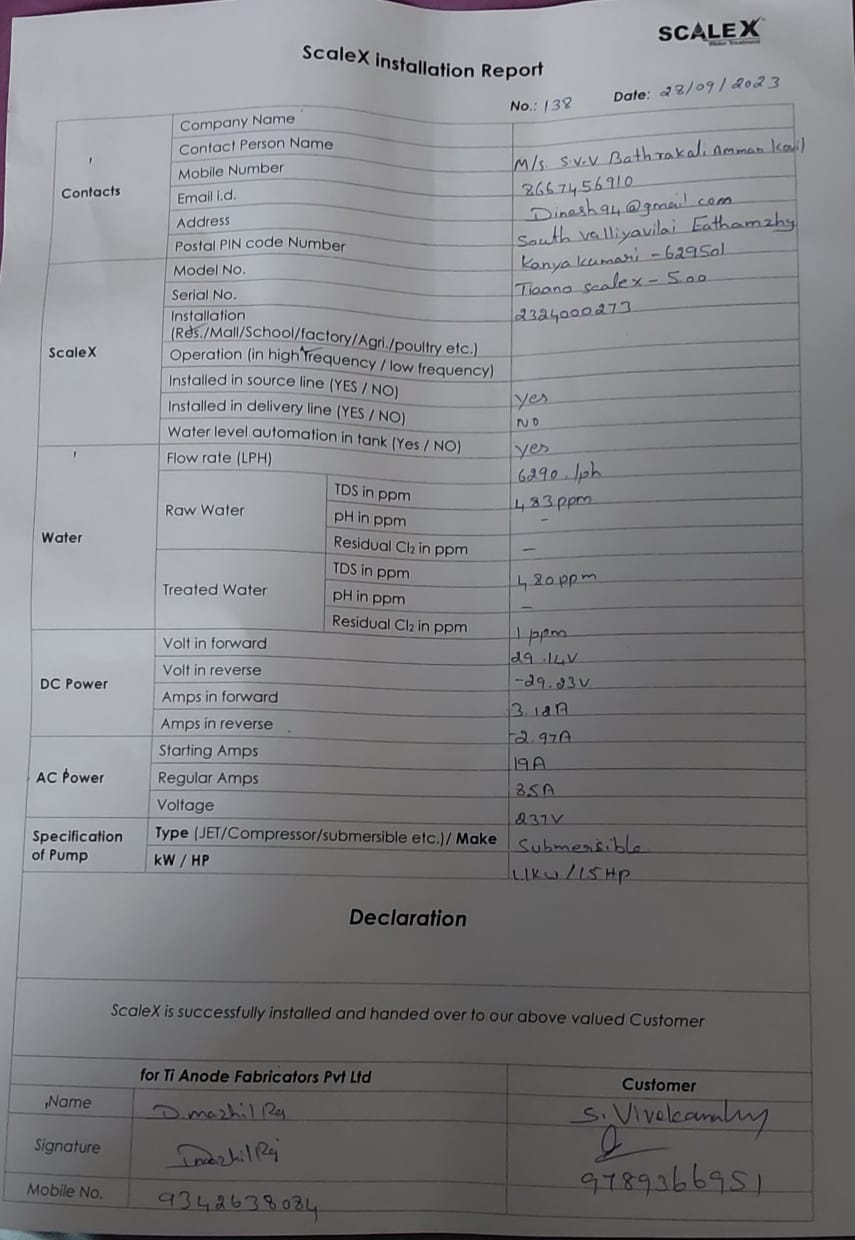 SCALEX
Water Treatment
ScaleX installation Report
No.: 138 Date: 28/09/2023
Contacts
Company Name
Contact Person Name M/s. S.V.V Bathrakali Amman Kovil
Mobile Number 8667456910
Email i.d. Dinesh94@gmail.com
Address South Valliyavilai Eathamzhy
Postal PIN code Number Kanyakumari - 629501
ScaleX
Model No. Tiaano scalex - 500
Serial No. 2324000273
Installation
(Res./Mall/School/factory/Agri./poultry etc.)
Operation (in high frequency / low frequency)
Installed in source line (YES / NO) Yes
Installed in delivery line (YES / NO) NO
Water level automation in tank (Yes / NO) Yes
Water
Flow rate (LPH) 6290 lph
Raw Water
TDS in ppm 483 ppm
pH in ppm -
Residual Cl2 in ppm -
Treated Water
TDS in ppm 480 ppm
pH in ppm -
Residual Cl2 in ppm 1 ppm
DC Power
Volt in forward 29.14V
Volt in reverse -29.23V
Amps in forward 3.12A
Amps in reverse -2.97A
AC Power
Starting Amps 19A
Regular Amps 85A
Voltage 237V
Specification
of Pump
Type (JET/Compressor/submersible etc.)/ Make Submersible
kW / HP 11KW/15HP
Declaration
ScaleX is successfully installed and handed over to our above valued Customer
for Ti Anode Fabricators Pvt Ltd Customer
Name D. Mazhil Raj
Signature
Mobile No. 9342638084
9789366951